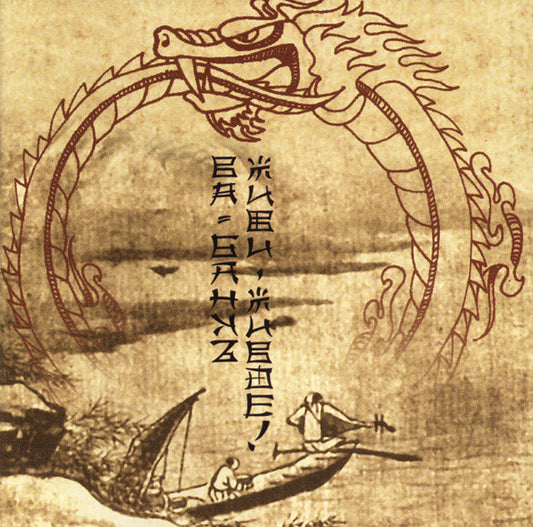 ВА=БАНКЪ
ЖИВИ, ЖИВОЕ!